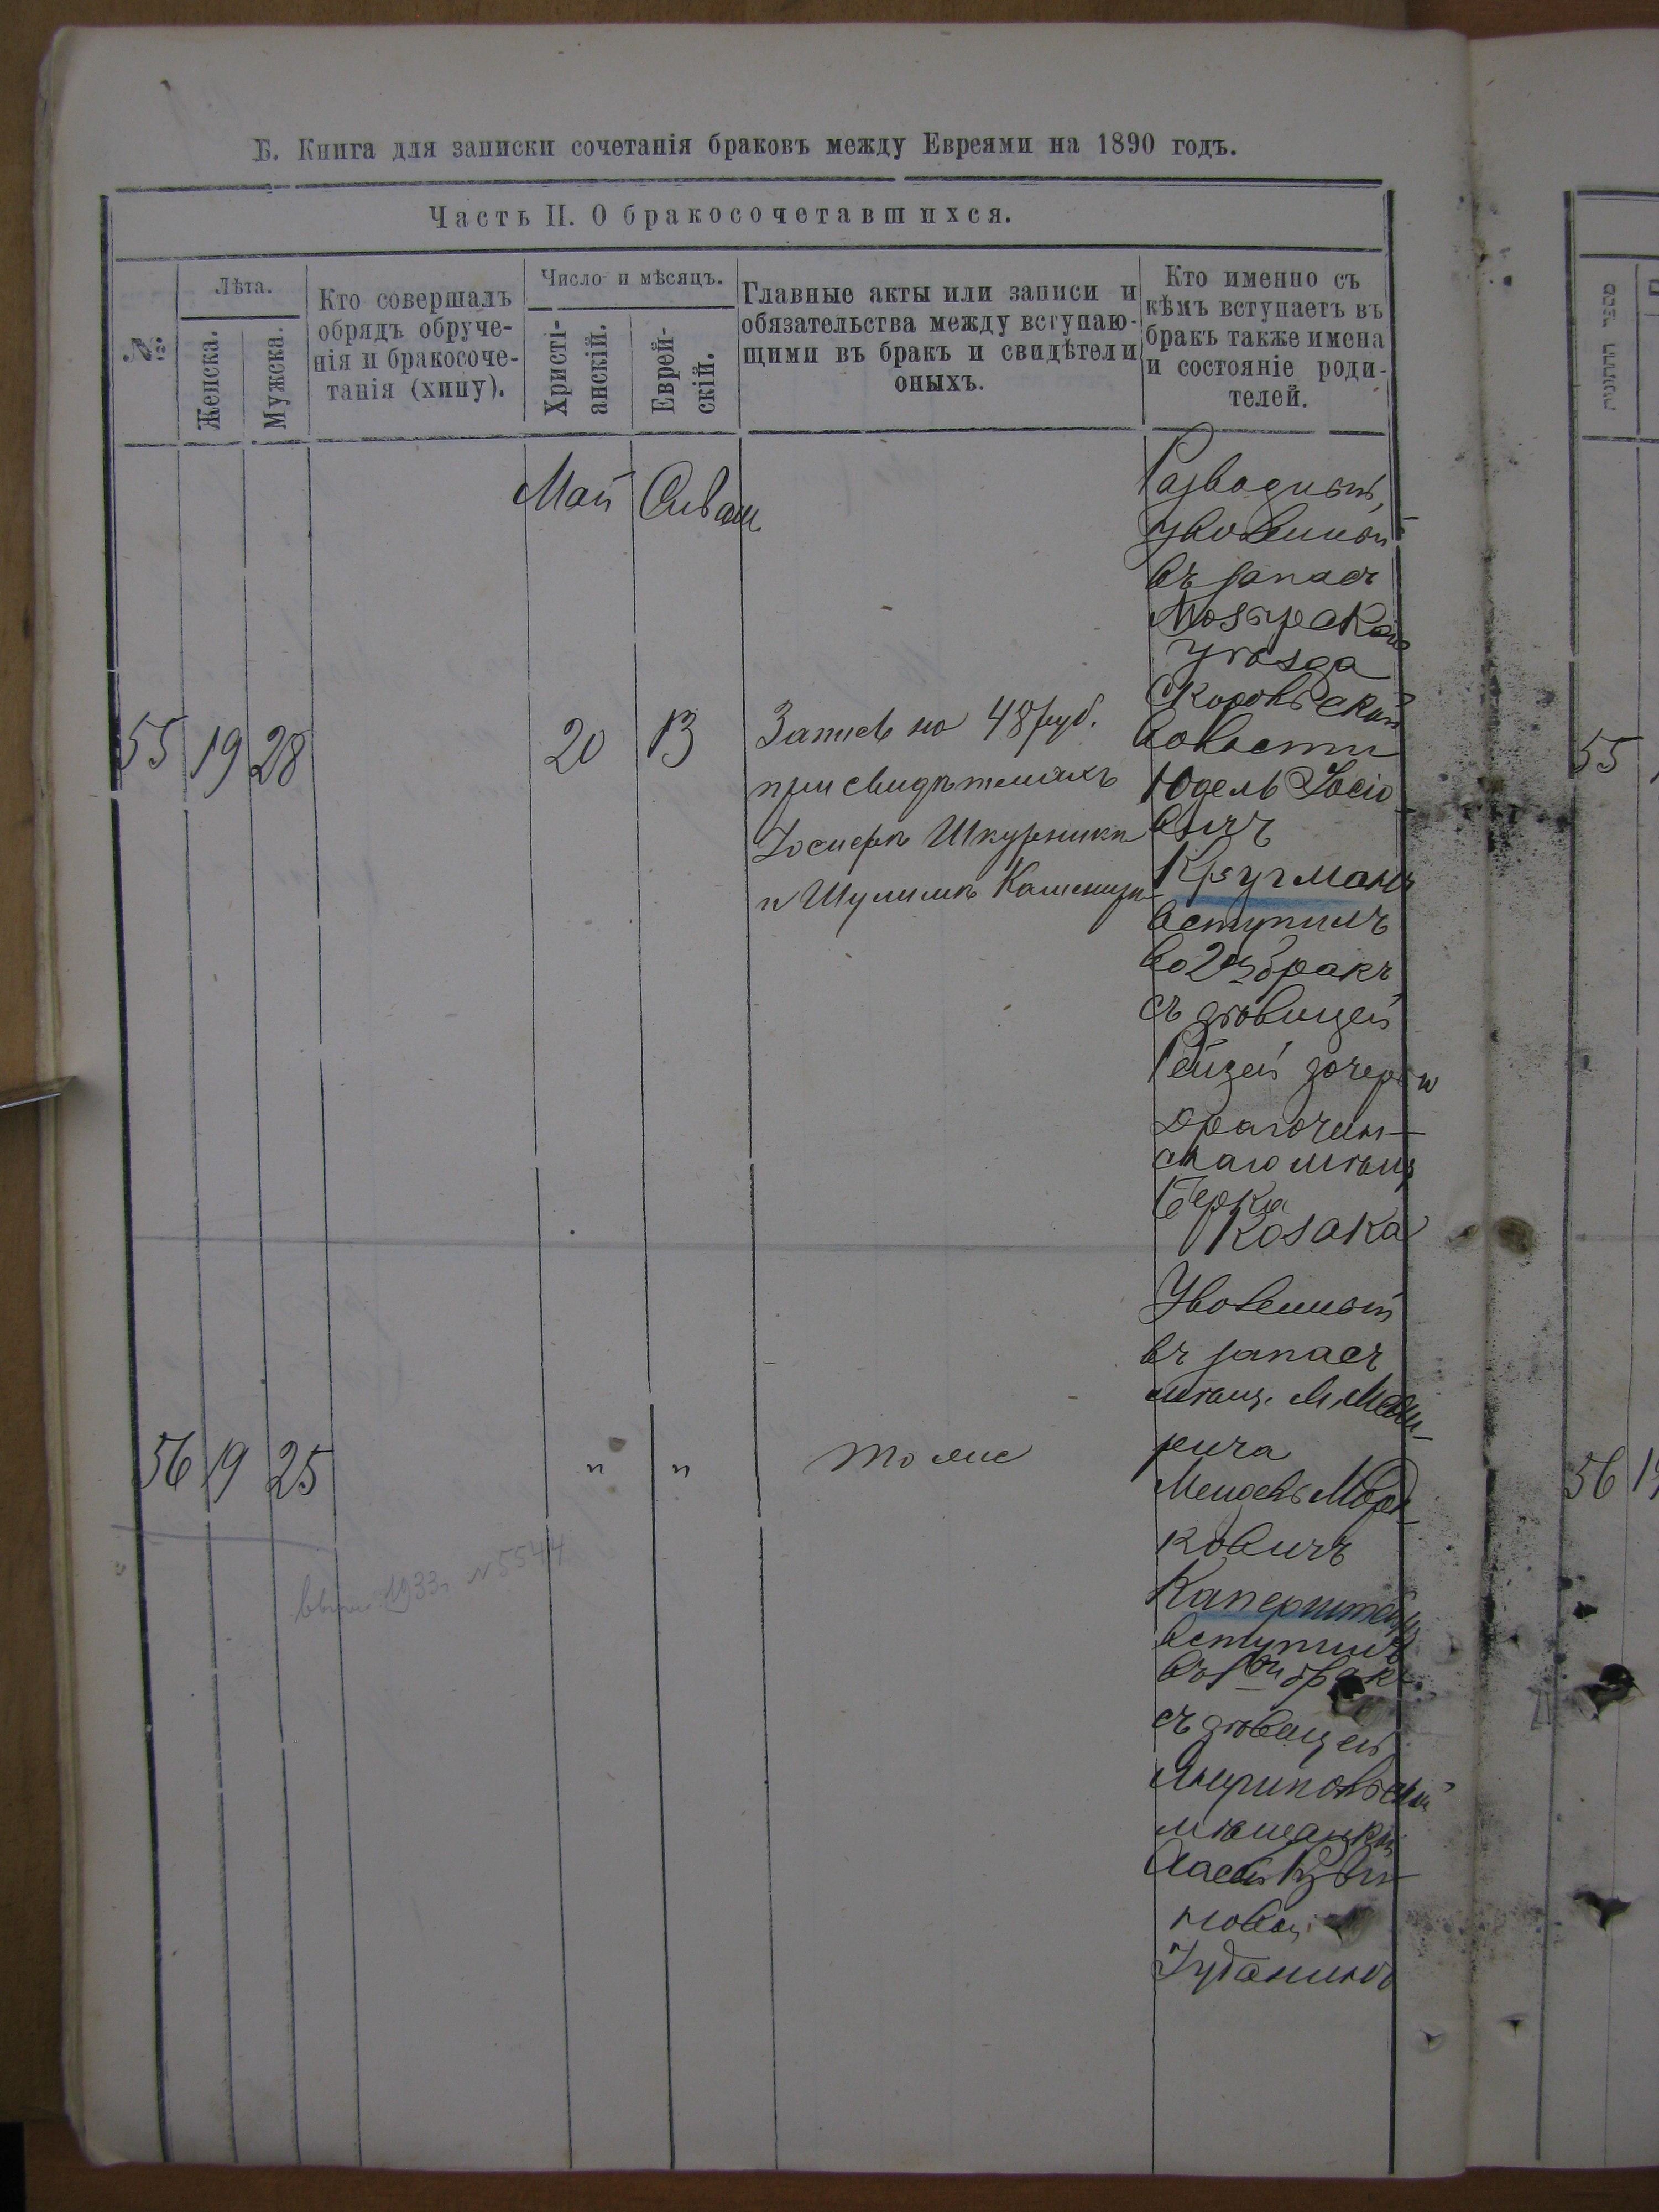 Б. Книга для записки сочетанія браковъ между Евреями на 1890 годъ.
Часть II. О бракосочетавшихся.
№
Лѣта.
Женска.
Мужска.
Кто совершалъ
обрядъ обруче-
нія и бракосоче-
танія (хипу).
Число и мѣсяцъ.
Христі-
анскій.
Еврей-
скій.
Главные акты или записи и
обязательства между вступаю-
щими въ бракъ и свидѣтели
оныхъ.
Кто именно съ
кѣмъ вступаетъ въ
бракъ также имена
и состояніе роди-
телей.
Май
Сиван
55
19
28
20
13
Запись на 48 руб.
при свидѣтеляхъ
Іосифѣ Шкурника
и Шулимѣ
Разводный,
уволенный
въ запасъ
Мозырскаго
уѣзда
волости
Юдель Іосіо-
вичъ
Кругманъ
вступилъ
во 2й бракъ
съ дѣвицей
Рейзей дочерью
Драгочин-
скаго мѣщ
Берка
Козака
56
19
25
"
"
тоже
Уволенный
въ запасъ
мѣщ. М. Межи-
рича
Мендель Морд-
ковичъ
Каперштейн
вступилъ
въ 1й бракъ
съ дѣвицей
мѣщанкой
Хасей
новой
1933 г. N 5544
55
56